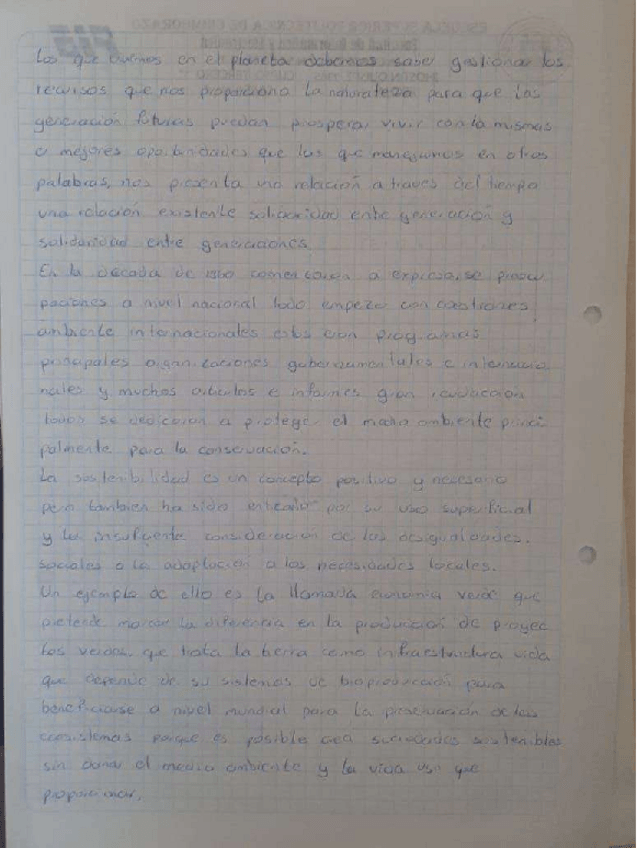 Los que vivimos en el planeta debemos saber gestionar los
recursos que nos proporciona la naturaleza para que las
generación futuras puedan prosperar vivir con la mismas
o mejores oportunidades que las que manejamos en otras
palabras, nos presenta una relación a traves del tiempo
una relación existente solidaridad entre generación y
solidaridad entre generaciones.
En la decada de 1980 comenzaron a expresarse preocu
paciones a nivel nacional todo empezo con cuestiones
ambiente internacionales estos eran programas
principales organizaciones gubernamentales e internacio
nales y muchos articulos e informes gran
todos se dedicaron a proteger el medio ambiente princi
palmente para la conservación.
La sostenibilidad es un concepto positivo y necesario
pero tambien ha sido criticado por su uso superficial
y la insuficiente consideración de las desigualdades.
sociales o la adaptación a las necesidades locales.
Un ejemplo de ello es la llamada economia verde que
pretende marcar la diferencia en la produccion de proyec
tos verdes, que trata la tierra como infraestructura vida
que depende de su sistemas de bioproducción para
beneficiarse a nivel mundial para la preservación de los
ecosistemas porque es posible crea sociedades sostenibles
sin dañar el medio ambiente y la vida que
proporcionar.